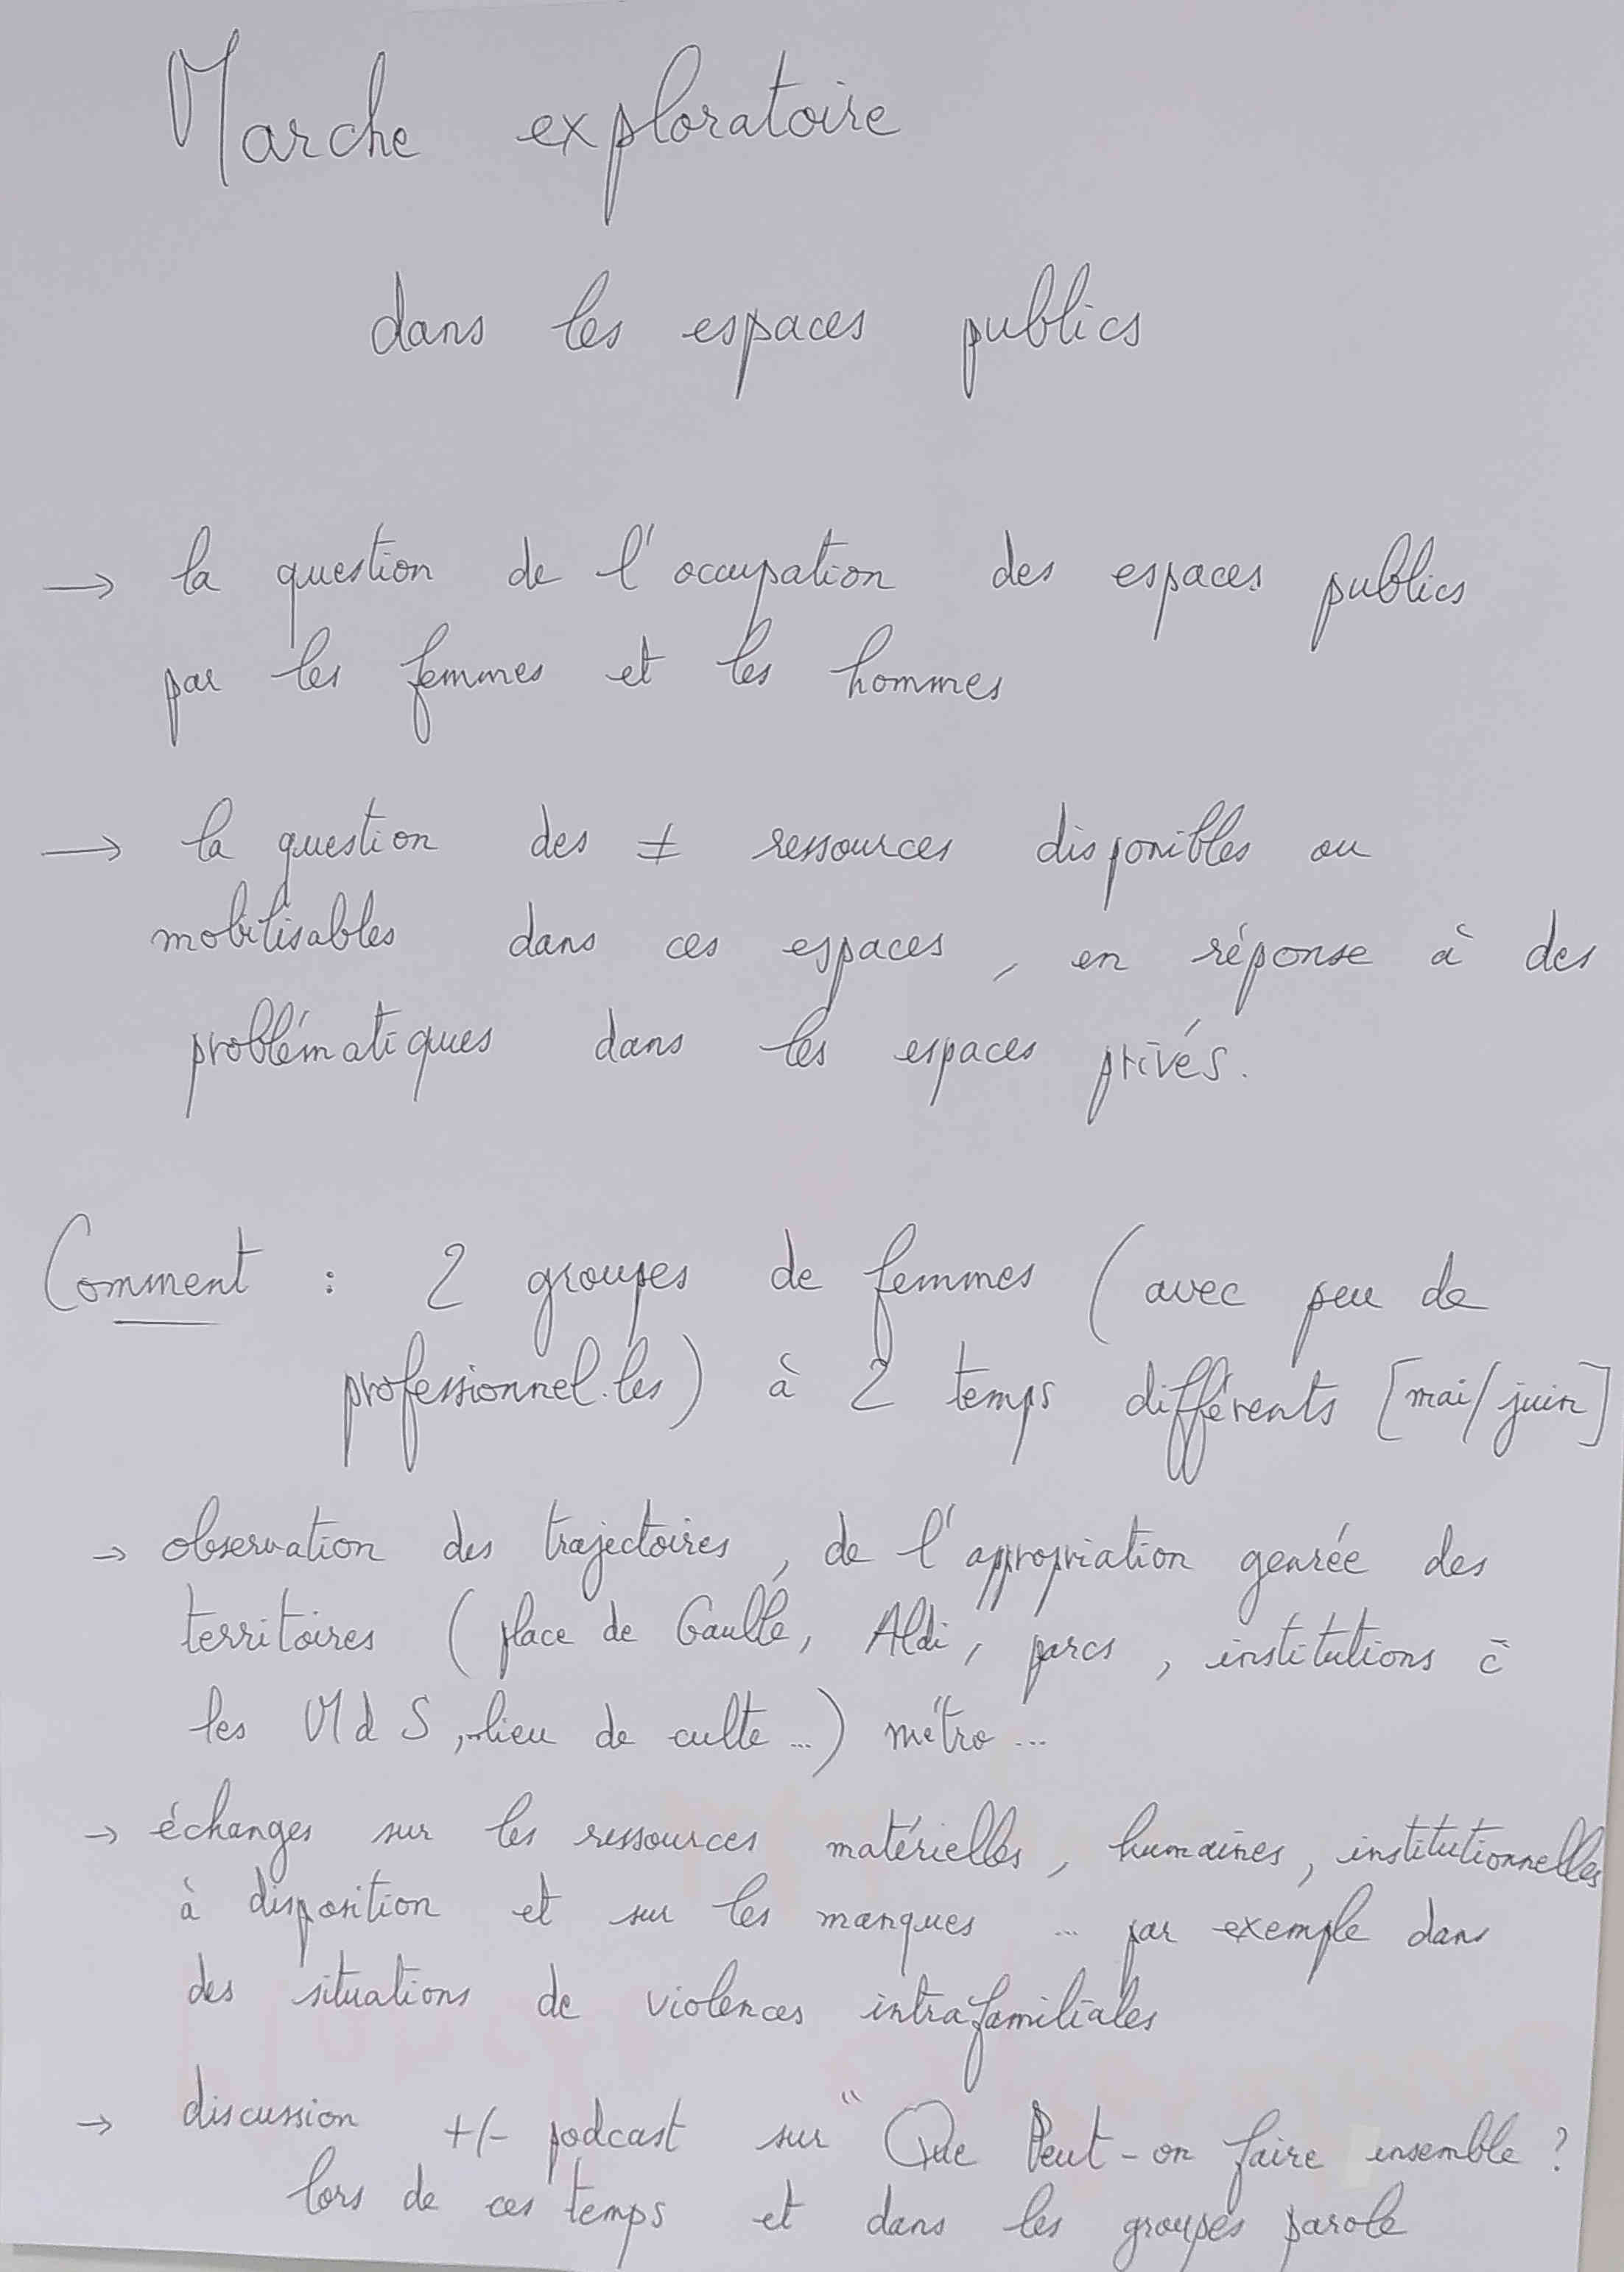 Marche exploratoire
dans les espaces publics
→ la question de l'occupation des espaces publics
par les femmes et les hommes
→ la question des ≠ ressources disponibles ou
mobilisables dans ces espaces, en réponse à des
problématiques dans les espaces privés.
Comment : 2 groupes de femmes (avec peu de
professionnel.les) à 2 temps différents [mai/juin]
→ observation des trajectoires, de l'appropriation genrée des
territoires (place de Gaulle, Aldi, parcs, institutions c̄
les MdS, lieu de culte ...) métro ...
→ échanges sur les ressources matérielles, humaines, institutionnelles
à disposition et sur les manques ... par exemple dans
des situations de violences intrafamiliales
→ discussion +/- podcast sur " Que Peut-on faire ensemble ?
lors de ces temps et dans les groupes parole